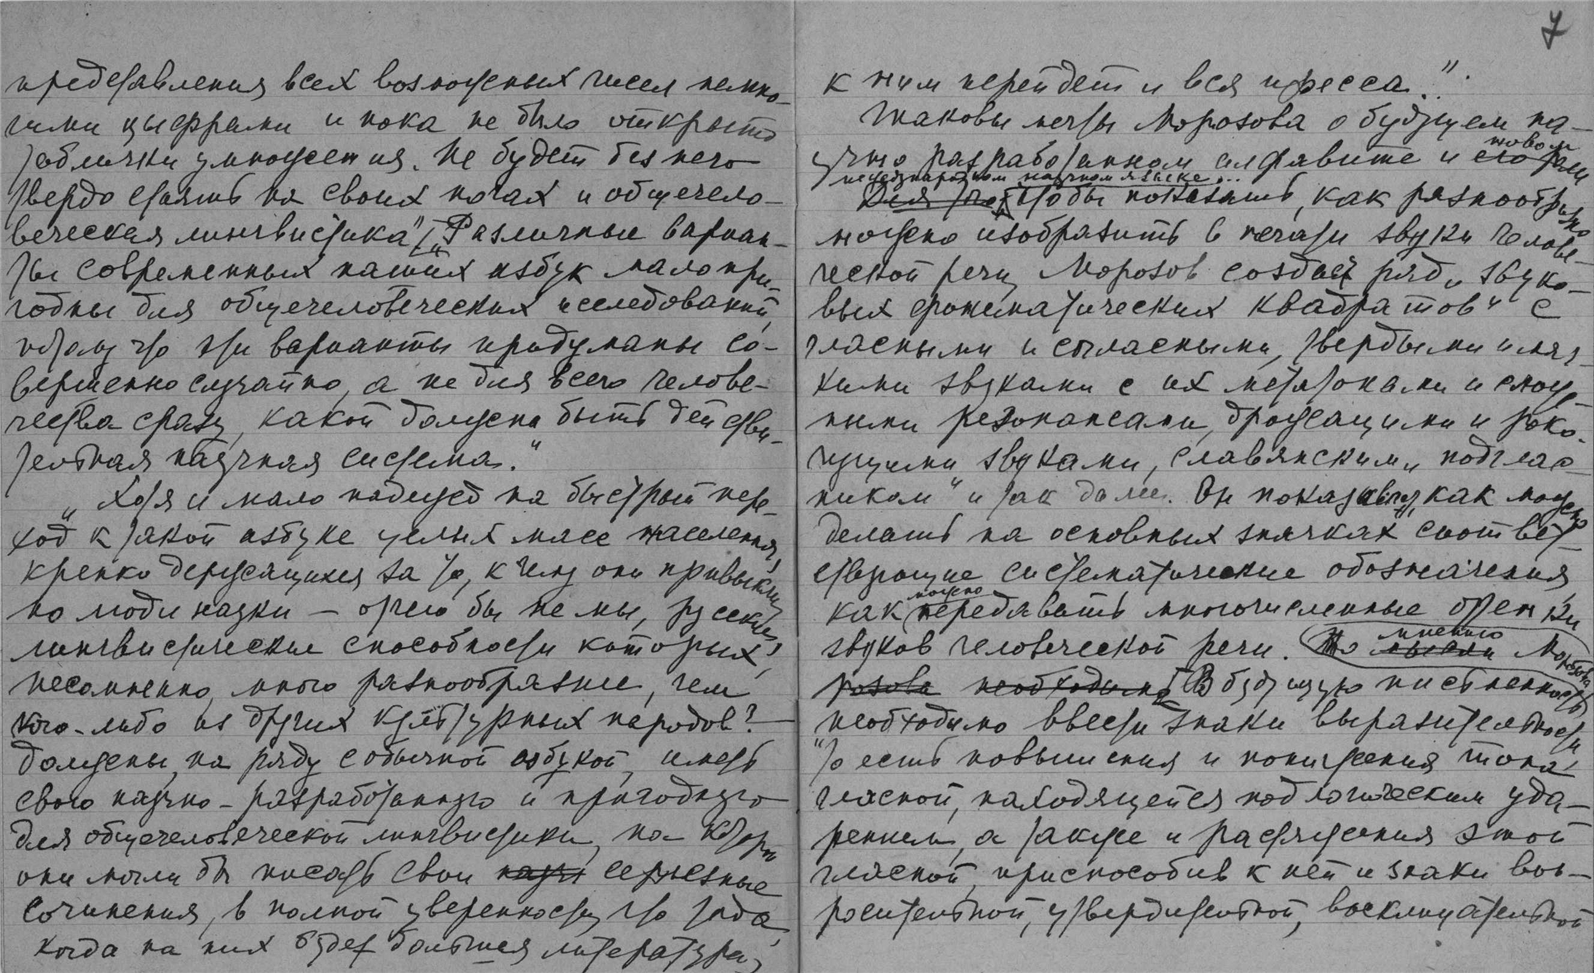 представления всех возможных чисел немно-
гими цыфрами и пока не было открыто
таблички умножения. Не будет без него
твердо стоять на своих ногах и общечело-
веческая лингвистика". „Различные вариан-
ты современных наших азбук мало при-
годны для общечеловеческих исследований,
потому что эти варианты придуманы со-
вершенно случайно, а не для всего челове-
чества сразу, какой должна быть действи-
тельная научная система."
„Хотя и мало надежд на быстрый пере-
ход к такой азбуке целых масс населения,
крепко держащихся за то, к чему они привыкли,
но люди науки – отчего бы не мы, русские,
лингвистические способности которых,
несомненно, много разнообразнее, чем
кого-либо из других культурных народов? –
должны, на ряду с обычной азбукой, иметь
свою научно-разработанную и пригодную
для общечеловеческой лингвистики, на которой
они могли бы писать свои серьезные
сочинения, в полной уверенности, что тогда,
когда на них будет большая литература,
7
к ним перейдет и вся пресса."
Таковы мечты Морозова о будущем на-
учно разработанном алфавите и новом
международном научном языке...
Для того чтобы показать, как разнообразно
можно изобразить в печати звуки челове-
ческой речи, Морозов создает ряд „звуко-
вых фонематических квадратов" с
гласными и согласными, твердыми и мяг-
кими звуками с их метатонами и слож-
ными резонансами, дрожащими и
звуками, славянским „подглас-
ником" и так далее. Он показывает, как можно
делать на основных значках соответ-
ствующие систематические обозначения,
как можно передавать многочисленные оттенки
звуков человеческой речи. По мнению Морозова
розова необходимо В будущую письменность
необходимо ввести знаки выразительности,
то есть повышения и понижения тона
гласной, находящейся под логическим уда-
рением, а также и растяжения этой
гласной, приспособив к ней и знаки воп-
росительной, утвердительной, восклицательной